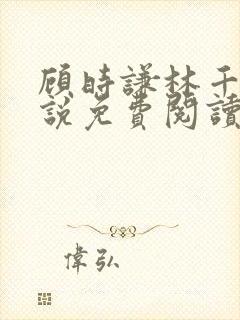 顾時謙林千
說免費閱讀
偉弘